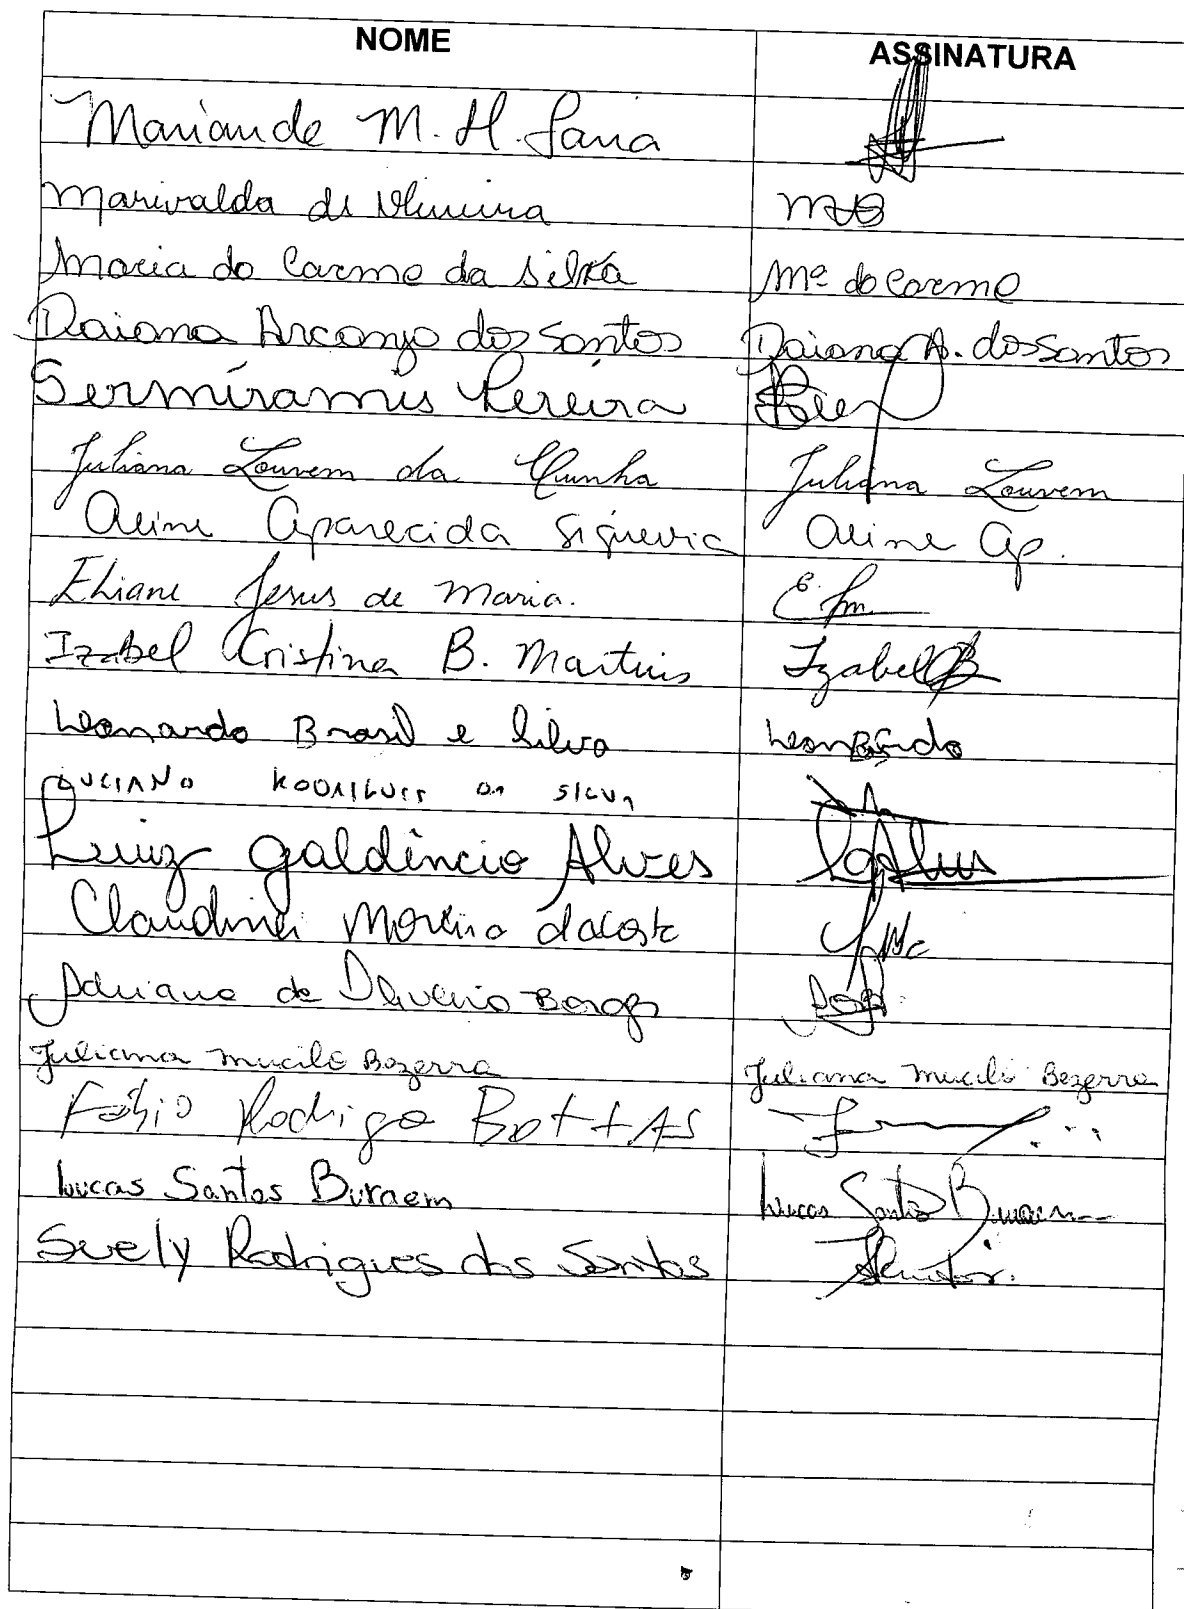 NOME ASSINATURA
Mariande M. H. Faria
Marivalda de Oliveira MO
Maria do Carmo da Silva Mª do Carmo
Daiana Arcanjo dos Santos Daiana A. dos Santos
Sermíramis Pereira
Juliana Louvem da Cunha Juliana Louvem
Aline Aparecida Siqueria Aline Ap.
Eliane Jesus de Maria. E. Jm
Izabel Cristina B. Martins Izabel CB
Leonardo Brasil e Silva Leonardo
LUCIANO RODRIGUES DA SILVA
Luiz Galdêncio Alves LgAlves
Claudinei Moreira dacosta
Adriana de Oliveira Borges
Juliana Murilo Bezerra Juliana Murilo Bezerra
Fábio Rodrigo BottAS
Lucas Santos Buraem Lucas Santos Buraem
Suely Rodrigues dos Santos